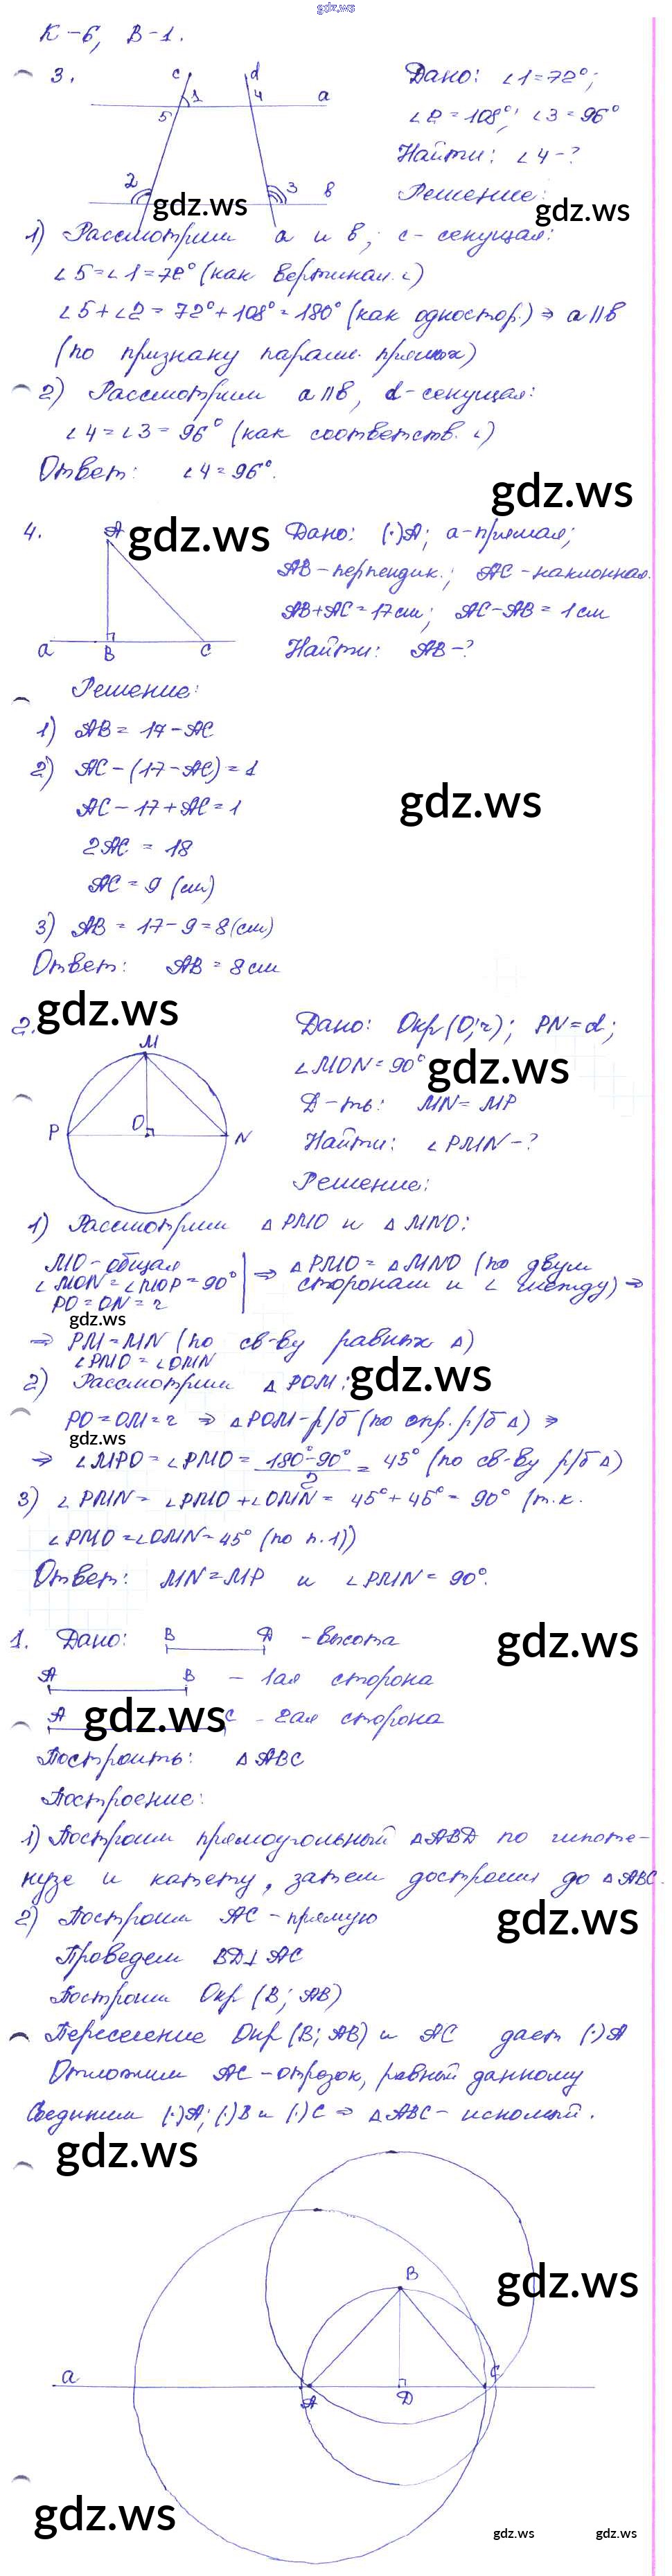 gdz.ws
К-6, В-1.
3. c d 1 4 a 5 2 3 в
Дано: ∠1=72°;
∠2=108°; ∠3=96°
Найти: ∠4-?
Решение:
gdz.ws
gdz.ws
1) Рассмотрим a и в, c-секущая:
∠5=∠1=72° (как вертикал. ∠)
∠5+∠2=72°+108°=180° (как одностор.) ⇒ a||в
(по признаку паралл. прямых)
2) Рассмотрим a||в, d-секущая:
∠4=∠3=96° (как соответств. ∠)
Ответ: ∠4=96°.
gdz.ws
4. A a B C
gdz.ws
Дано: (·)A; a-прямая;
AB-перпендик.; AC-наклонная.
AB+AC=17см; AC-AB=1см
Найти: AB-?
Решение:
1) AB=17-AC
2) AC-(17-AC)=1
AC-17+AC=1
gdz.ws
2AC=18
AC=9 (см)
3) AB=17-9=8(см)
Ответ: AB=8см
gdz.ws
2. M P O N
Дано: Окр(O;r); PN=d;
∠MON=90°
gdz.ws
Д-ть: MN=MP
Найти: ∠PMN-?
Решение:
1) Рассмотрим △PMO и △MNO:
MO-общая
∠MON=∠MOP=90°
PO=ON=r
⇒ △PMO=△MNO (по двум
сторонам и ∠ между) ⇒
gdz.ws
⇒ PM=MN (по св-ву равных △)
∠PMO=∠OMN
2) Рассмотрим △POM:
gdz.ws
PO=OM=r ⇒ △POM-р/б (по опр. р/б △) ⇒
gdz.ws
⇒ ∠MPO=∠PMO= 180°-90° / 2 = 45° (по св-ву р/б △)
3) ∠PMN=∠PMO+∠OMN=45°+45°=90° (т.к.
∠PMO=∠OMN=45° (по п.1))
Ответ: MN=MP и ∠PMN=90°.
1. Дано: B D - высота
gdz.ws
A B - 1ая сторона
A C - 2ая сторона
gdz.ws
Построить: △ABC
Построение:
1) Построим прямоугольный △ABD по гипоте-
нузе и катету, затем достроим до △ABC.
2) Построим AC-прямую
gdz.ws
Проведем BD⊥AC
Построим Окр(B; AB)
Пересечение Окр(B; AB) и AC дает (·)A
Отложим AC-отрезок, равный данному
Соединим (·)A; (·)B и (·)C ⇒ △ABC-искомый.
gdz.ws
B
gdz.ws
a A D C
gdz.ws
gdz.ws
gdz.ws